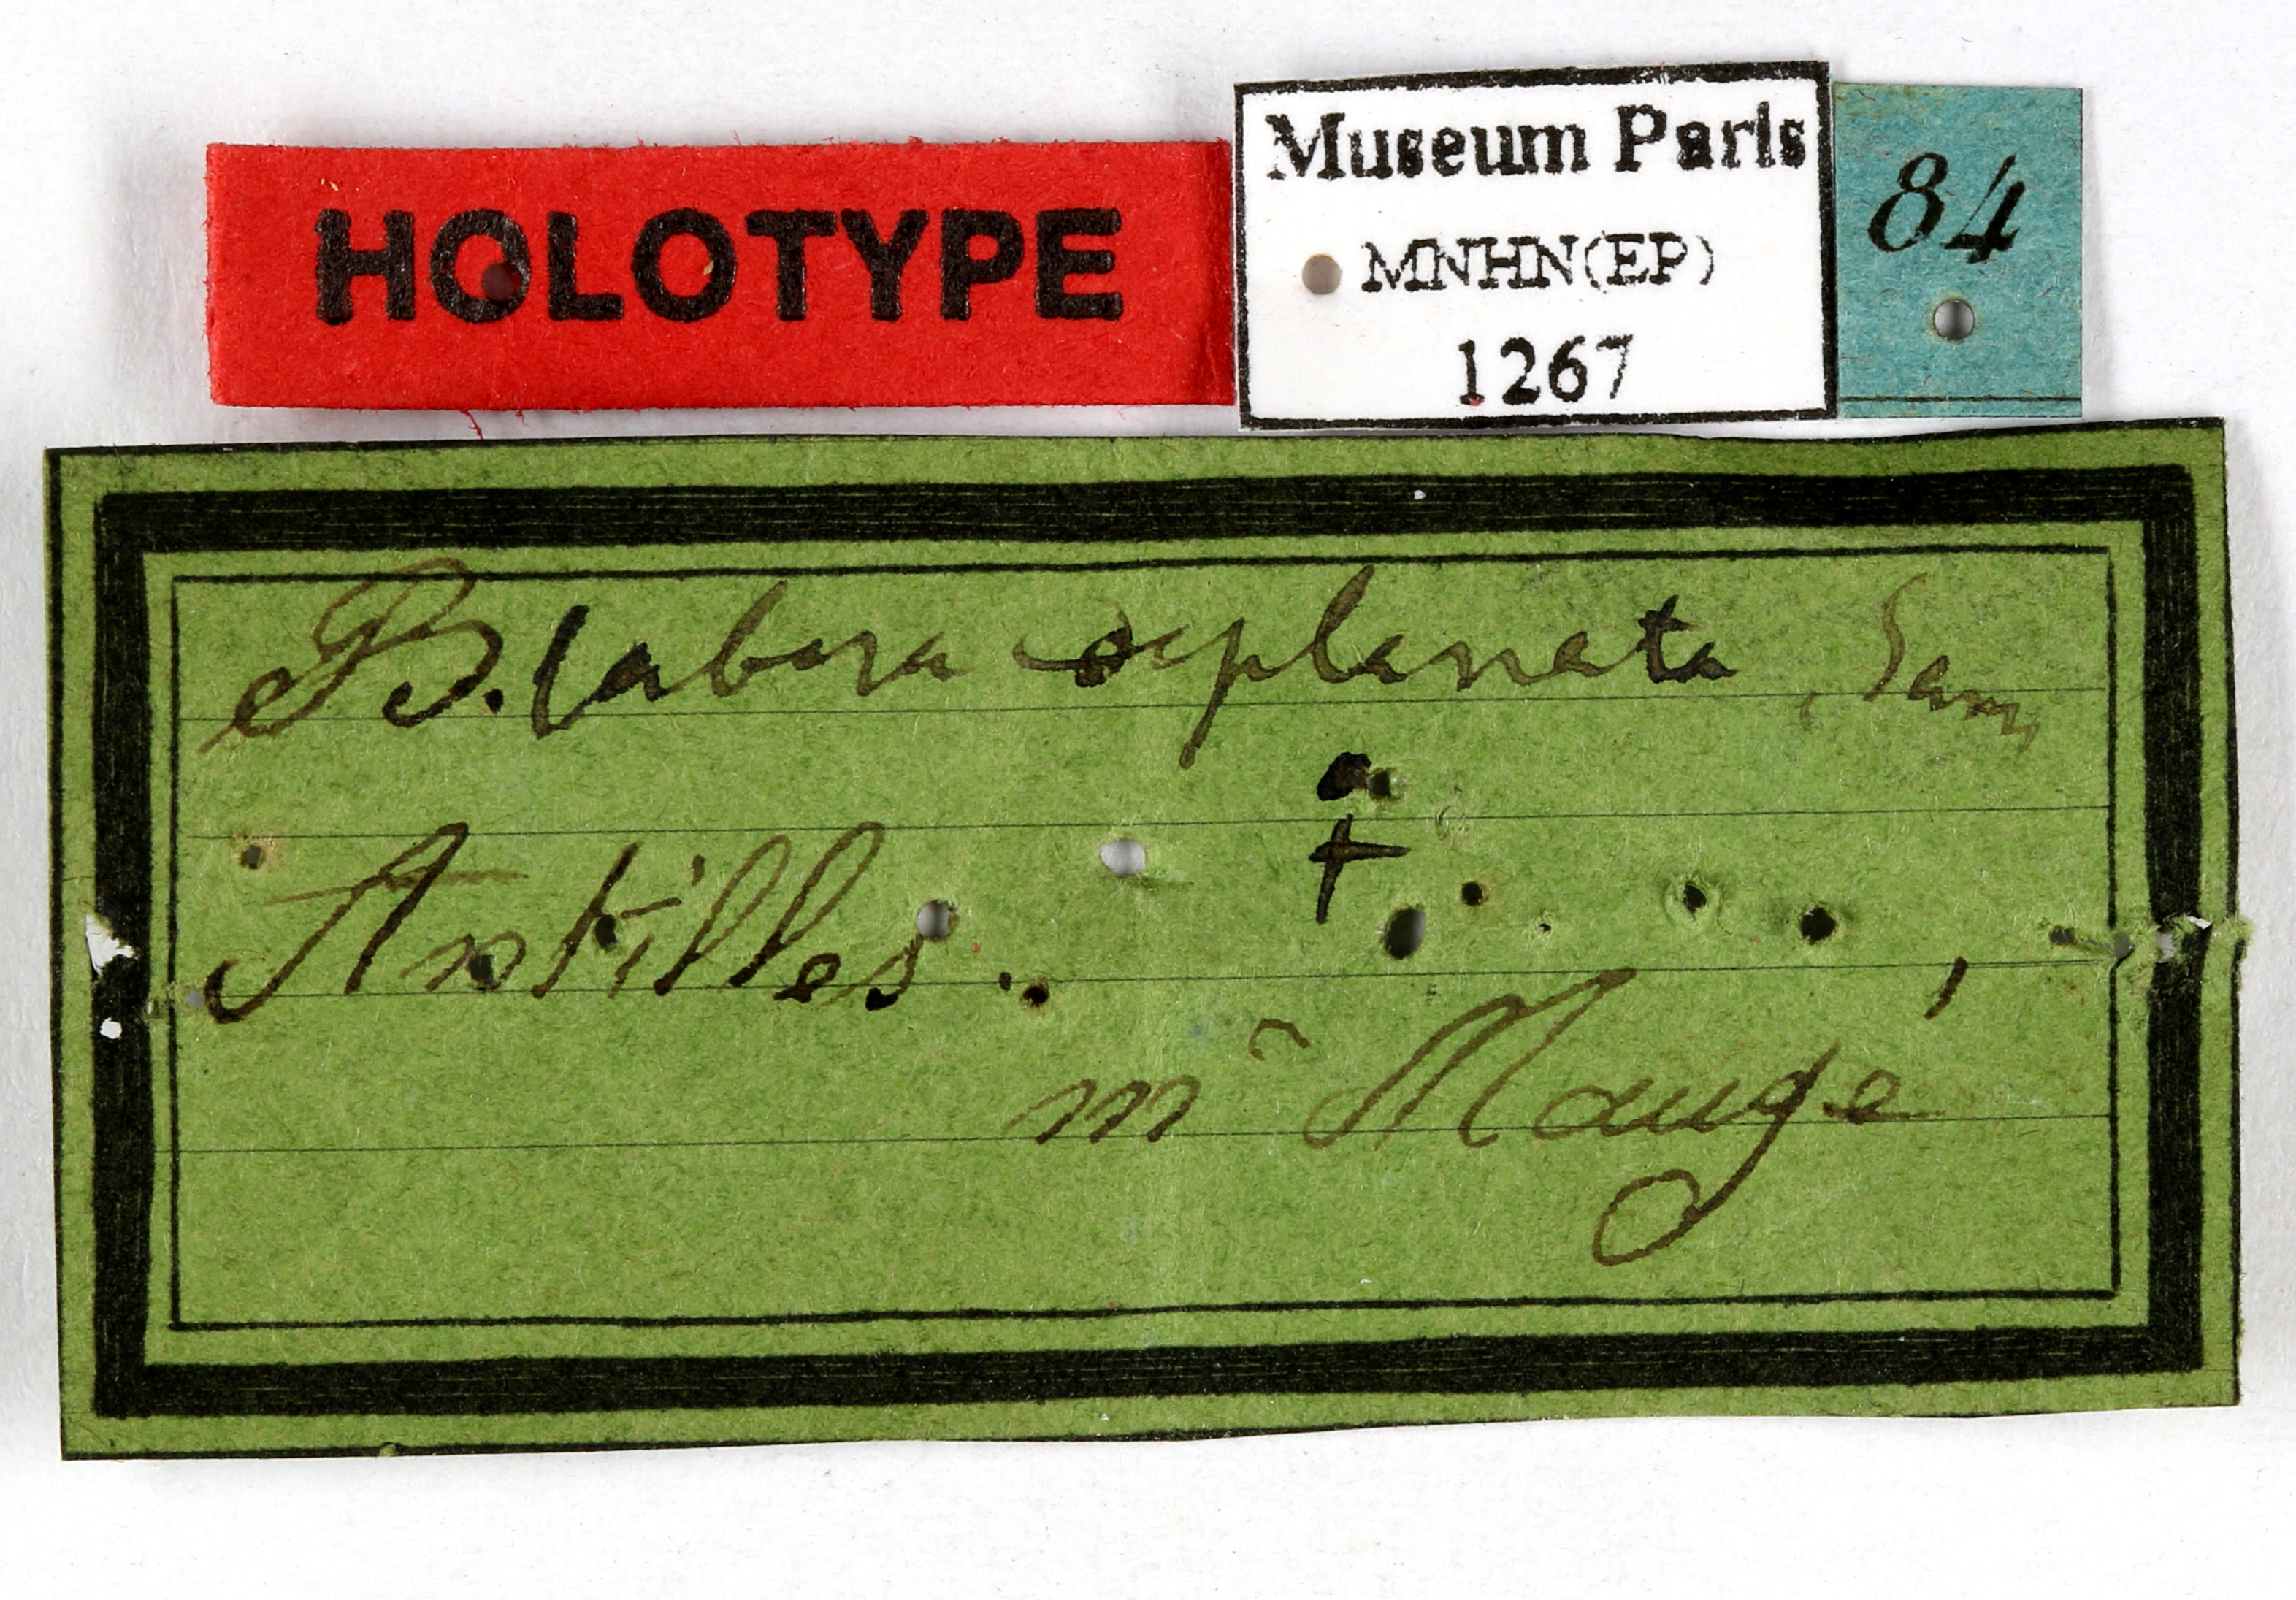 HOLOTYPE
Museum Paris
MNHN(EP)
1267
84
B. labera
Antilles.
mr Maugé